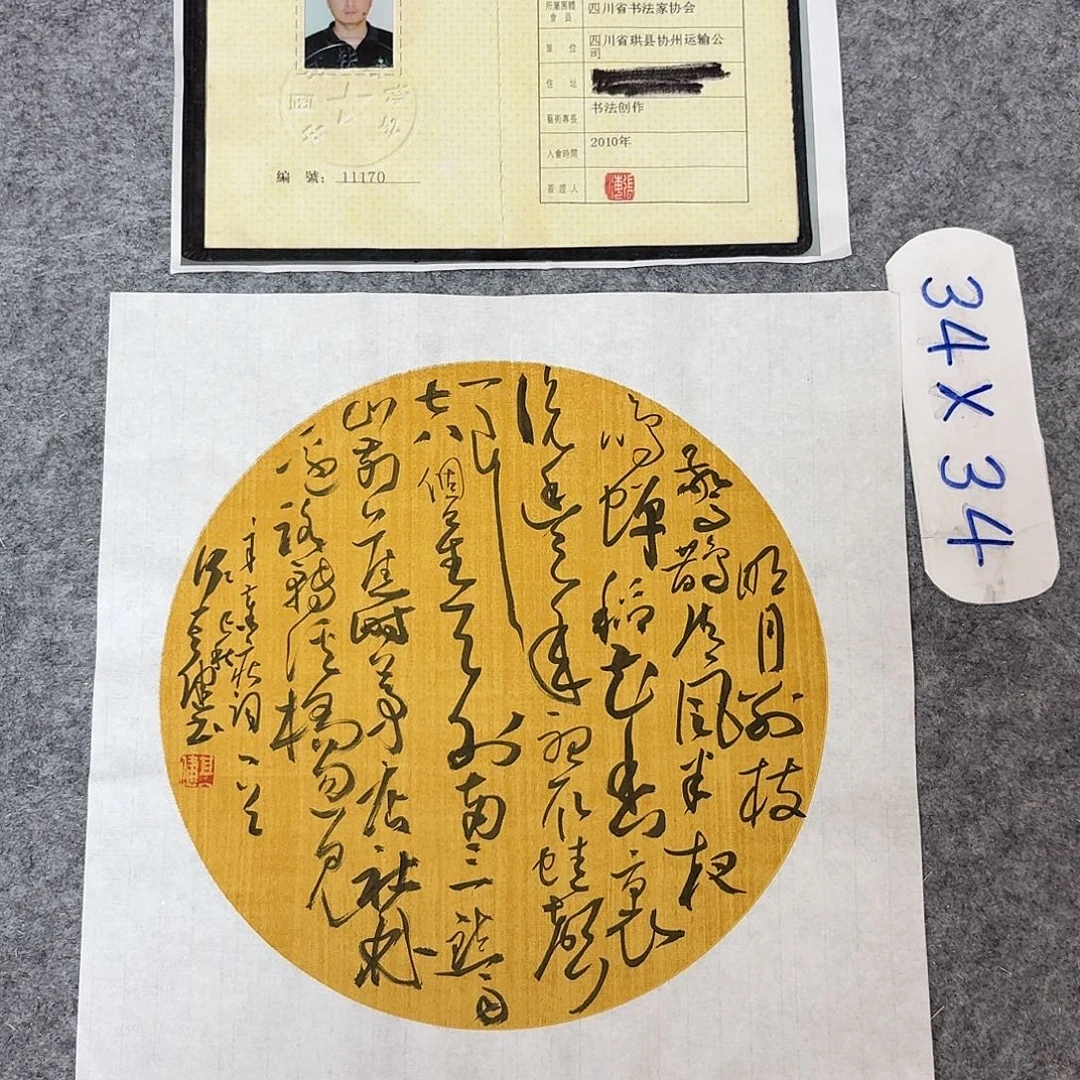 所屬團體
會員
四川省书法家协会
單 位
四川省珙县协州运输公
司
住 址
藝術專長
书法创作
入會時間
2010年
簽證人
編 號: 11170
34 X 34
明月別枝
驚鵲清風半夜
鳴蟬稻花香裏
說豐年聽取蛙聲
一片
七八個星天外兩三點雨
山前舊時茅店社林
邊路轉溪橋忽見
辛棄疾詞一首